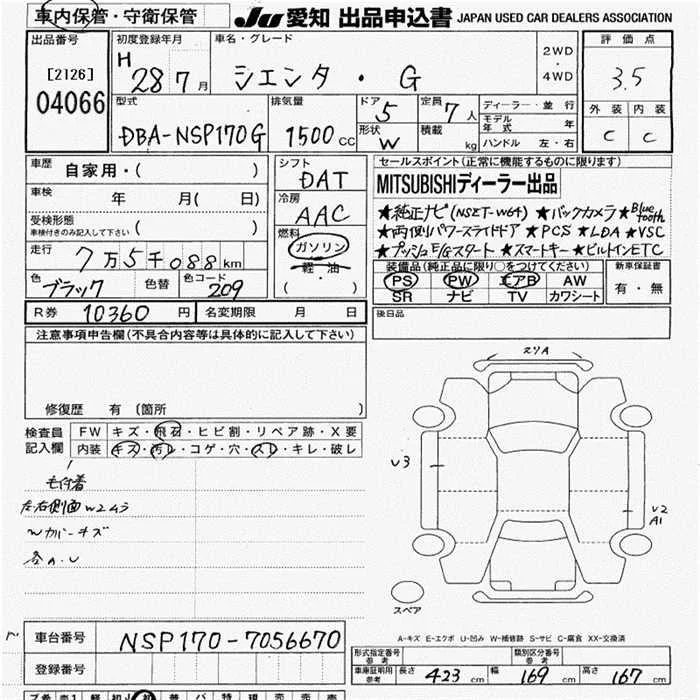 車内保管・守衛保管
JU 愛知 出品申込書 JAPAN USED CAR DEALERS ASSOCIATION
出品番号
[2126]
04066
初度登録年月
H 28 7 月
車名・グレード
シエンタ ・ G
2WD
・
4WD
評価点
3.5
外装 内装
C C
型式
DBA-NSP170G
排気量
1500 CC
ドア 5
形状 W
定員 7 人
積載 kg
ディーラー・並行
モデル年式 年
ハンドル 左・右
車歴 自家用・( )
車検 年 月( 日)
受検形態 ・( )
車検付きのみ記入して下さい
走行 7万5千088km
色 ブラック 色替 色コード 209
シフト
DAT
冷房
AAC
燃料
ガソリン
軽・油
( )
セールスポイント(正常に機能するものに限ります)
MITSUBISHIディーラー出品
★純正ナビ(NSZT-W64) ★バックカメラ ★Bluetooth
★両側パワースライドドア ★PCS ★LDA ★VSC
★プッシュE/Gスタート ★スマートキー ★ビルトインETC
装備品(純正品に限り○をつけてください)
PS PW エアB AW
SR ナビ TV カワシート
新車保証書
有・無
後日品
R券 10360 円 名変期限 月 日
注意事項申告欄(不具合内容等は具体的に記入して下さい)
修復歴 有 (箇所 )
検査員記入欄
FW キズ・飛石・ヒビ割・リペア跡・X要
内装 キズ・汚レ・コゲ・穴・スレ・キレ・破レ
左右側面W2ムラ
Wカバーキズ
各A.U
リヤA
U3
U2
A1
スペア
A-キズ E-エクボ U-凹み W-補修跡 S-サビ C-腐食 XX-交換済
車台番号 NSP170-7056670
登録番号
形式指定番号 参考
類別区分番号 参考
車庫証明用 参考 長さ 423 cm 幅 169 cm 高さ 167 cm